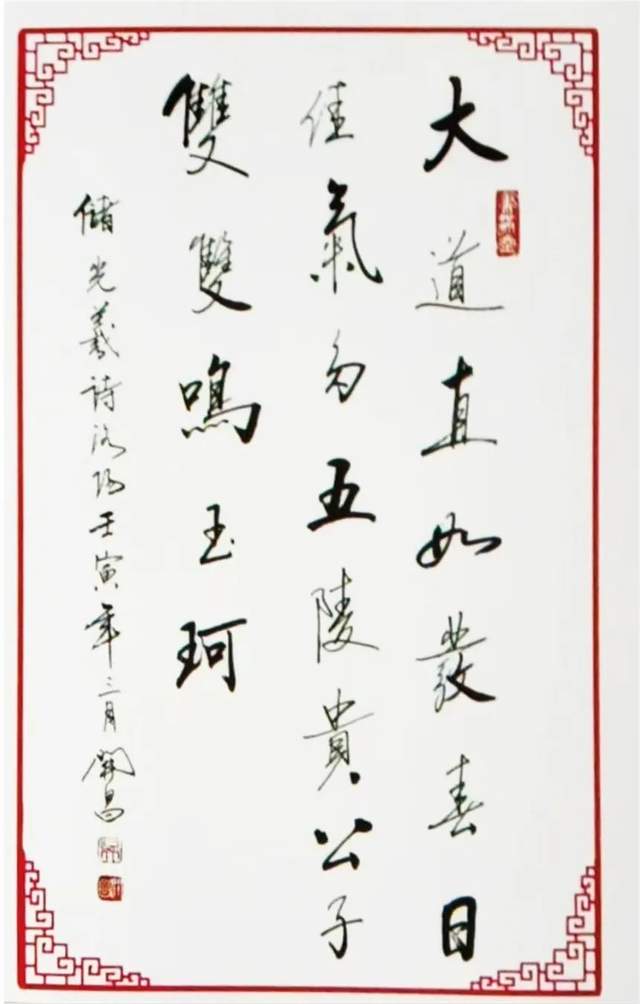 大道直如發春日
佳氣勻五陵貴公子
雙雙鳴玉珂
儲光羲詩洛陽壬寅年三月開昌